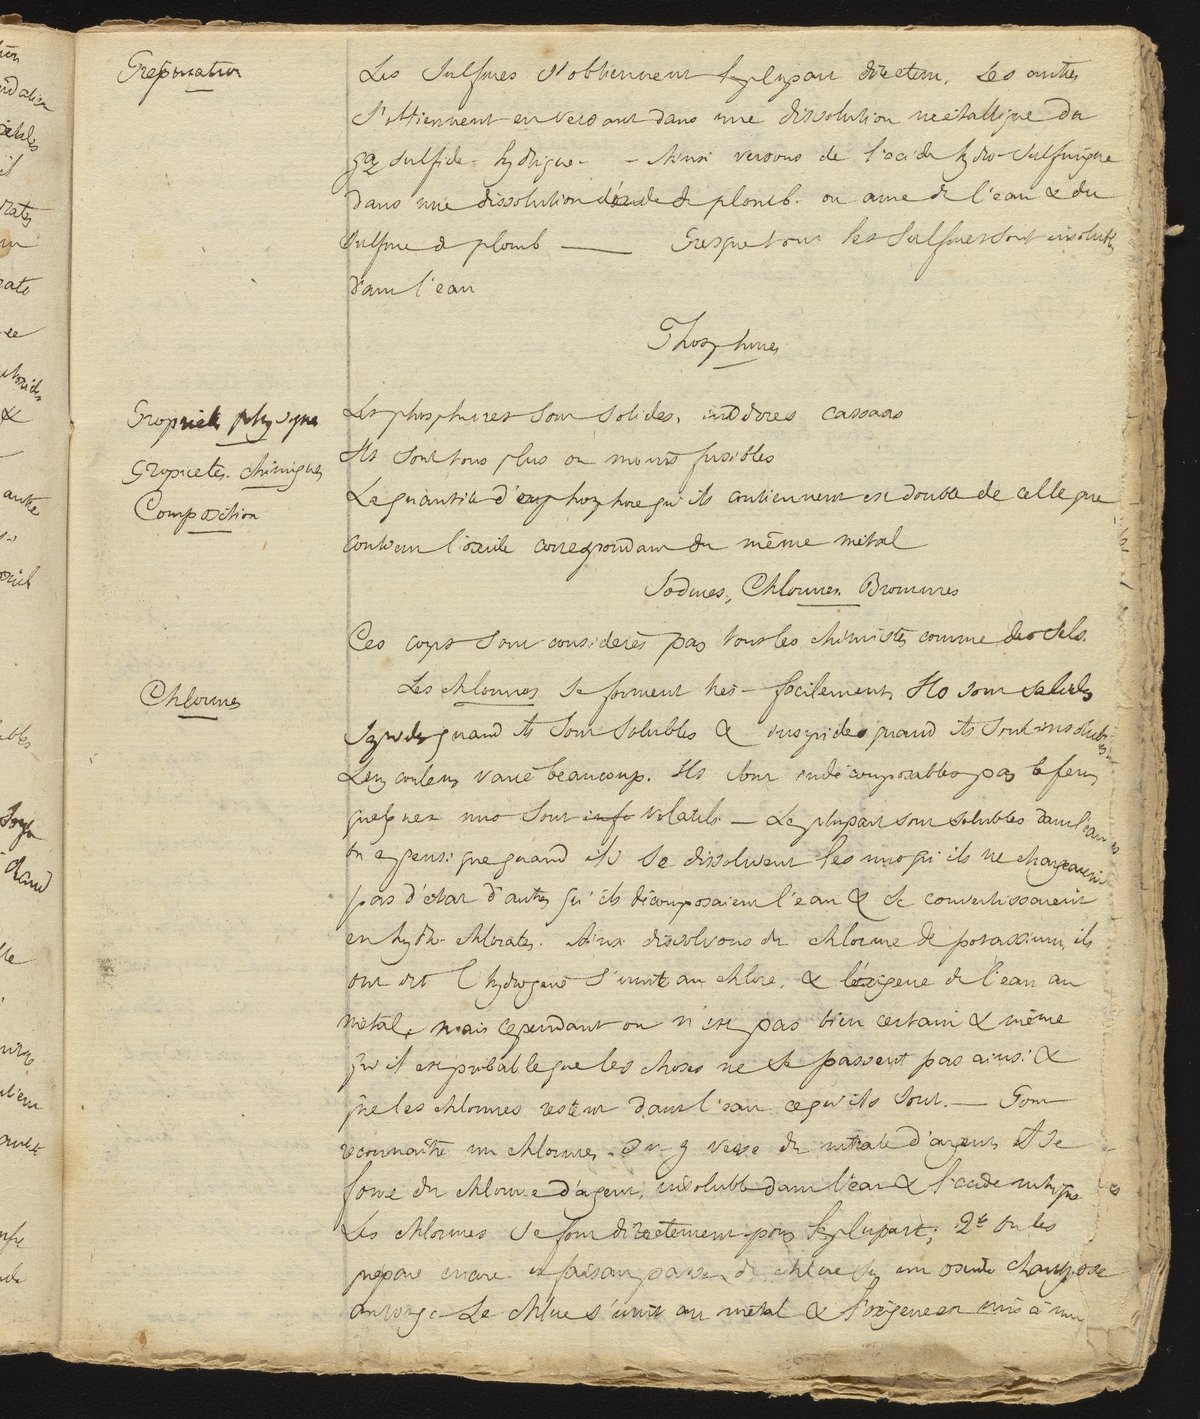 Préparation
Les Sulfures s'obtiennent la plupart directem. Les autres
s'obtiennent en versant dans une dissolution métallique du
gaz sulfide hydrique. — Ainsi versons de l'acide hydro-sulfurique
dans une dissolution d'oxide de plomb. on aura de l'eau & du
sulfure de plomb — Presque tous les sulfures sont insolubles
dans l'eau
Phosphures
Propriétés physiques
Les phosphures sont solides, inodores cassans
Ils sont tous plus ou moins fusibles
Propriétés chimiques
Composition
La quantité de phosphore qu'ils contiennent est double de celle que
contient l'oxide correspondant du même métal
Iodures, Chlorures Bromures
Ces corps sont considérés par tous les chimistes comme des sels.
Chlorures
Les chlorures se forment très-facilement, Ils sont solides
sapides quand ils sont solubles & insipides quand ils sont insolubles
Leur couleur varie beaucoup. Ils sont indécomposables par le feu
quelques uns sont volatils — La plupart sont solubles dans l'eau
on a pensé que quand ils se dissolvent les uns qu'ils ne changeaient
pas d'état d'autres qu'ils décomposaient l'eau & se convertissaient
en hydro-chlorates. Ainsi dissolvons du chlorure de potassium, ils
ont dit l'hydrogène s'unit au chlore, & l'oxigène de l'eau au
métal, mais cependant on n'est pas bien certain & même
qu'il est probable que les choses ne se passent pas ainsi &
que les chlorures restent dans l'eau ce qu'ils sont. — Pour
reconnaître un chlorure. On y verse du nitrate d'argent Il se
forme du chlorure d'argent, insoluble dans l'eau & l'acide nitrique
Les chlorures se font directement pour la plupart; 2t On les
prépare encore en faisant passer du chlore sur un oxide chauffé
au rouge. Le chlore s'unit au métal & l'oxigène est mis à nu